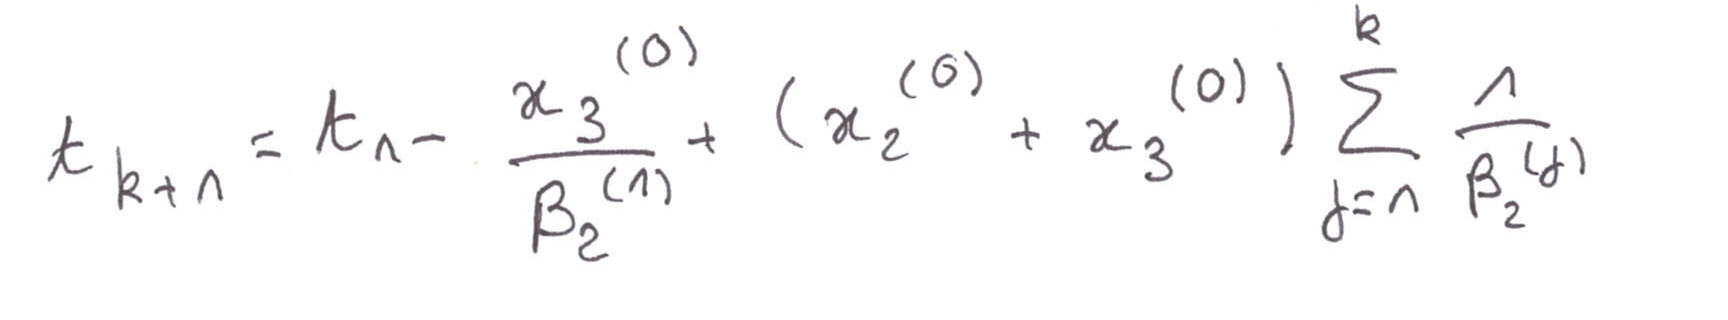 t_{k+1} = t_1 - \frac{x_3^{(0)}}{\beta_2^{(1)}} + (x_2^{(0)} + x_3^{(0)}) \sum_{j=1}^{k} \frac{1}{\beta_2^{(j)}}